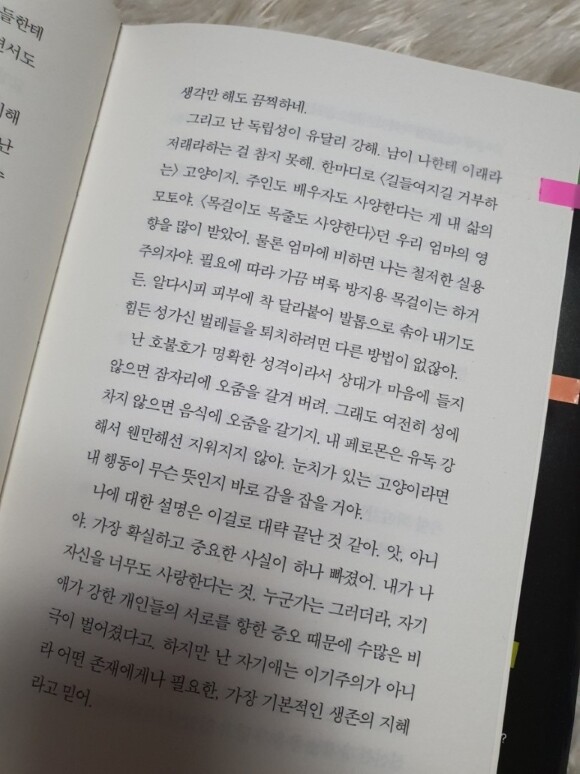 들한테
면서도
해
난
생각만 해도 끔찍하네.
그리고 난 독립성이 유달리 강해. 남이 나한테 이래라
저래라하는 걸 참지 못해. 한마디로 〈길들여지길 거부하
는〉 고양이지. 주인도 배우자도 사양한다는 게 내 삶의
모토야. 〈목걸이도 목줄도 사양한다〉던 우리 엄마의 영
향을 많이 받았어. 물론 엄마에 비하면 나는 철저한 실용
주의자야. 필요에 따라 가끔 벼룩 방지용 목걸이는 하거
든. 알다시피 피부에 착 달라붙어 발톱으로 솎아 내기도
힘든 성가신 벌레들을 퇴치하려면 다른 방법이 없잖아.
난 호불호가 명확한 성격이라서 상대가 마음에 들지
않으면 잠자리에 오줌을 갈겨 버려. 그래도 여전히 성에
차지 않으면 음식에 오줌을 갈기지. 내 페로몬은 유독 강
해서 웬만해선 지워지지 않아. 눈치가 있는 고양이라면
내 행동이 무슨 뜻인지 바로 감을 잡을 거야.
나에 대한 설명은 이걸로 대략 끝난 것 같아. 앗, 아니
야. 가장 확실하고 중요한 사실이 하나 빠졌어. 내가 나
자신을 너무도 사랑한다는 것. 누군가는 그러더라, 자기
애가 강한 개인들의 서로를 향한 증오 때문에 수많은 비
극이 벌어졌다고. 하지만 난 자기애는 이기주의가 아니
라 어떤 존재에게나 필요한, 가장 기본적인 생존의 지혜
라고 믿어.
?